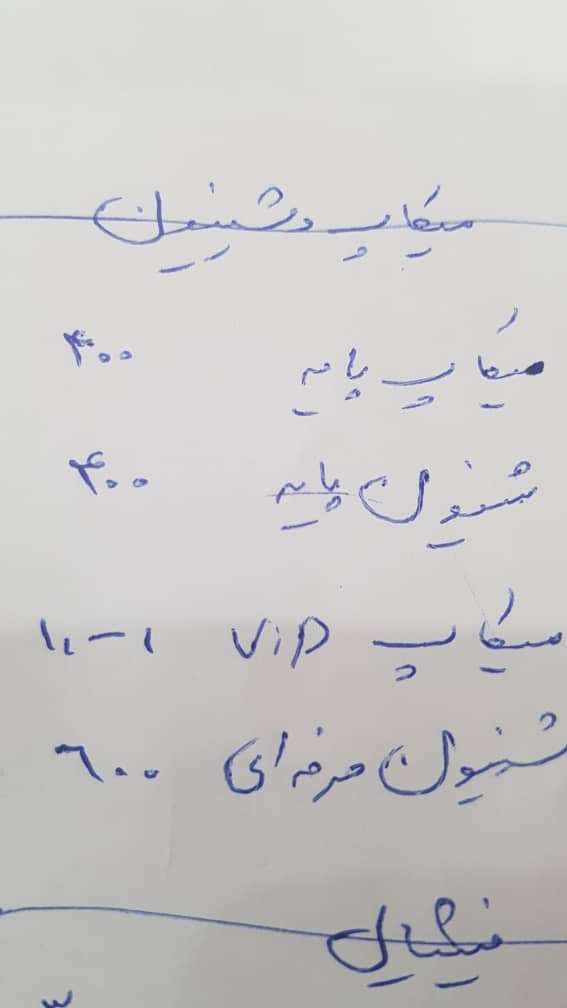 میکاپ و شینیون
میکاپ پایه ۴۰۰
شنیون پایه ۴۰۰
میکاپ ViP
شنیون حرفه ای ۶۰۰
فیشیال
۳